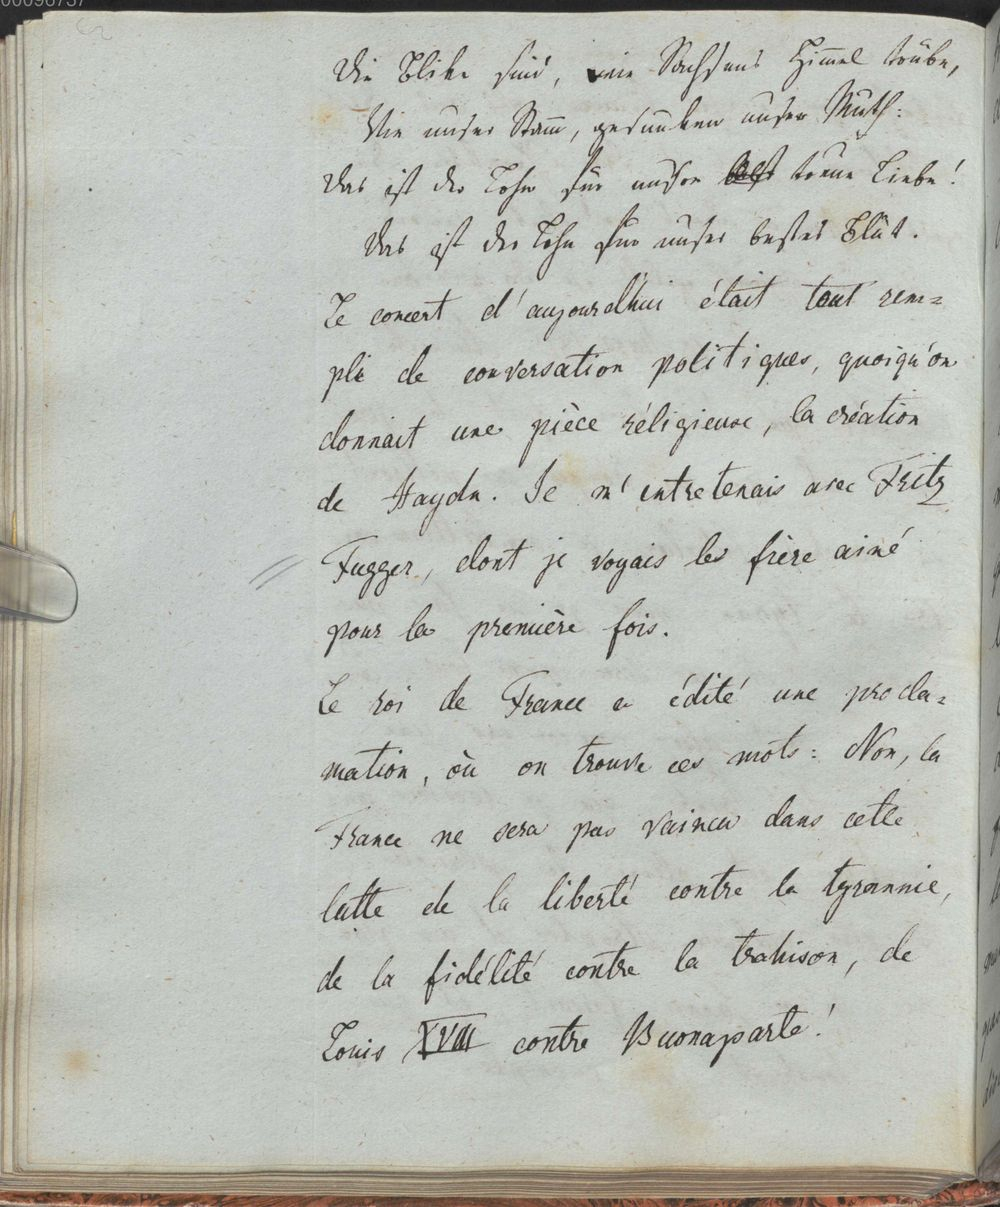 00096737
62
Die Blike sind, wie Sachsens Himmel trübe,
Wie unser Stamm, gesunken unser Muth:
Das ist der Lohn für unsre treue Liebe!
Das ist der Lohn für unser bestes Blut.
Le concert d'aujourdhui était tout rem=
pli de conversation politiques, quoiqu'on
donnait une pièce réligieuse, la création
de Haydn. Je m'entretenais avec Fritz
Fugger, dont je voyais le frère ainé
pour la première fois.
Le roi de France a édité une procla=
mation, où on trouve ces mots: Non, la
France ne sera pas vaincu dans cette
lutte de la liberté contre la tyrannie,
de la fidélité contre la trahison, de
Louis XVIII contre Buonaparte!